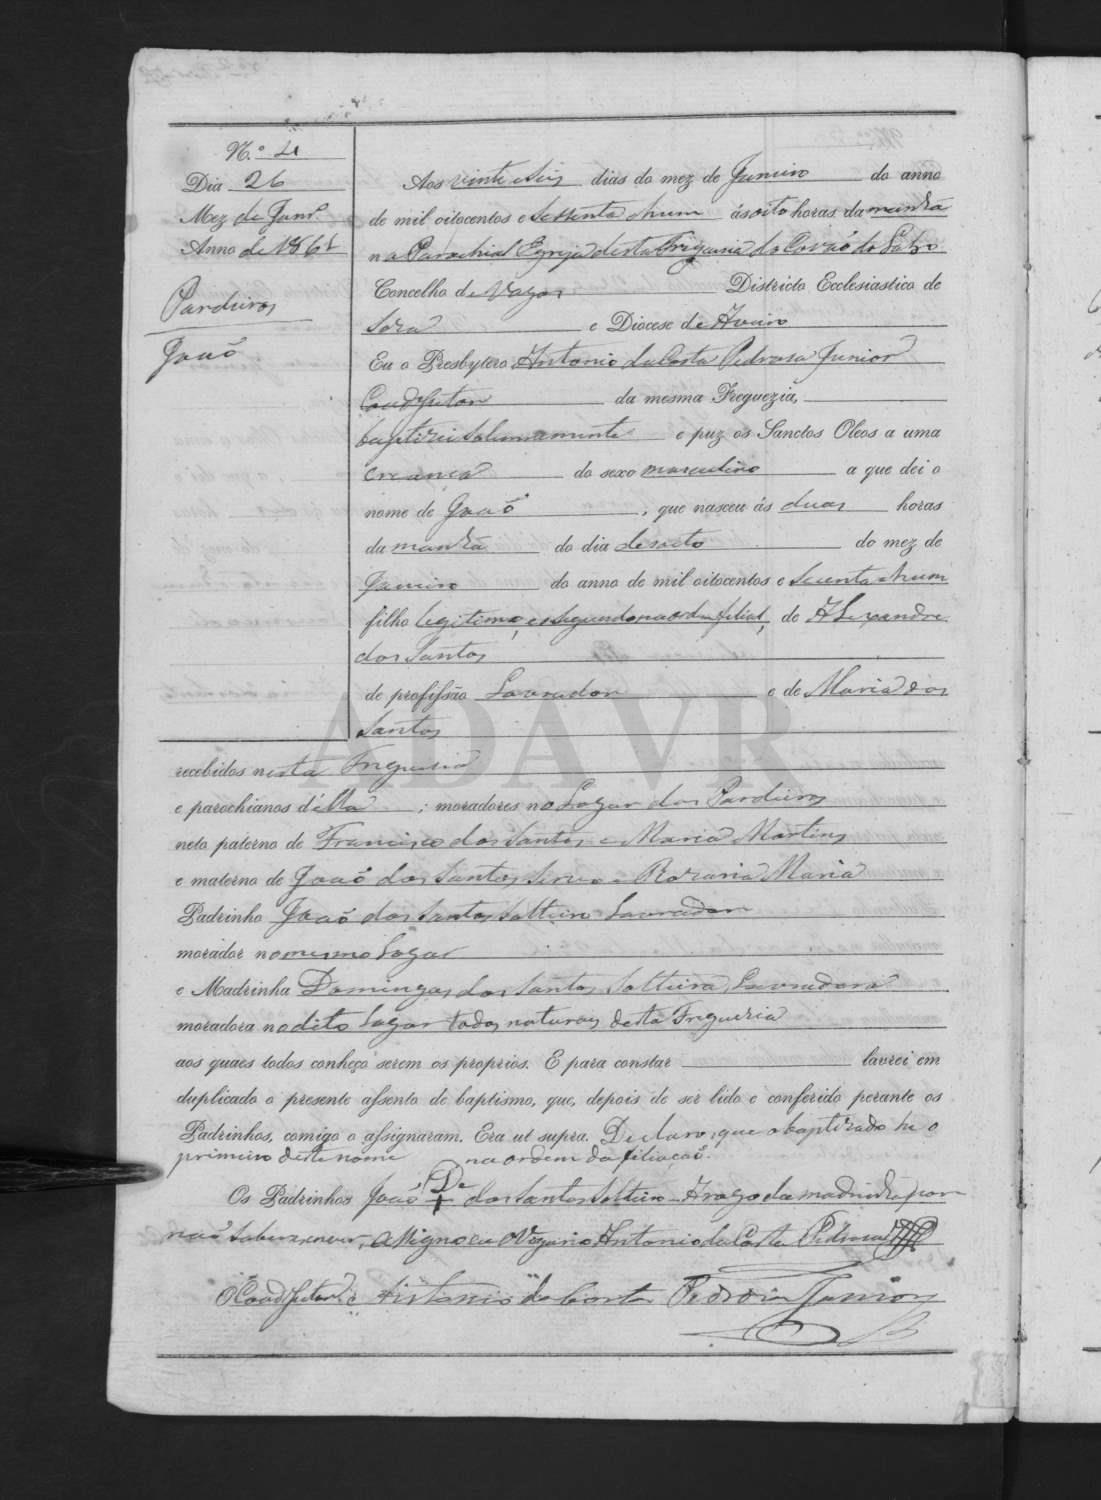 N.º 4
Dia 26
Mez de Janr.º
Anno de 1861
Pardieiros
João
Aos vinte e seis dias do mez de Janeiro do anno
de mil oitocentos e sessenta e hum ás oito horas da manhã
na Parochial Egreja desta Freguesia do Covaõ do Lobo
Concelho de Vagos Districto Ecclesiastico de
Soza e Diocese de Aveiro
Eu o Presbytero Antonio da Costa Pedrosa Junior
Coadjutor da mesma Freguezia,
baptizei solemnemente e puz os Sanctos Oleos a uma
creança do sexo masculino a que dei o
nome de Joaõ, que nasceu ás duas horas
da manhã do dia desoito do mez de
Janeiro do anno de mil oitocentos e secenta e hum
filho legitimo, e segundo na ordem filial, de Alexandre
dos Santos
de profissão Lavrador e de Maria dos
Santos
recebidos nesta Freguesia
e parochianos d'ella; moradores no Lugar dos Pardieiros
neto paterno de Francisco dos Santos e Maria Martins
e materno de Joaõ dos Santos e Rozaria Maria
Padrinho Joaõ dos Santos Solteiro Lavrador
morador no mesmo Lugar
e Madrinha Domingas dos Santos Solteira, Lavradora
moradora no dito Lugar todos naturaes desta Freguezia
aos quaes todos conheço serem os proprios. E para constar lavrei em
duplicado o presente assento de baptismo, que, depois de ser lido e conferido perante os
Padrinhos, comigo o assignaram. Era ut supra. Declaro, que o baptizado he o
primeiro deste nome na ordem da filiação.
Os Padrinhos João De + dos Santos Solteiro - A rogo da madrinha por
naõ saber escrever, assigno eu Vigario Antonio da Costa Pedrosa
O Coadjutor Antonio da Costa Pedrosa Junior
ADAVR